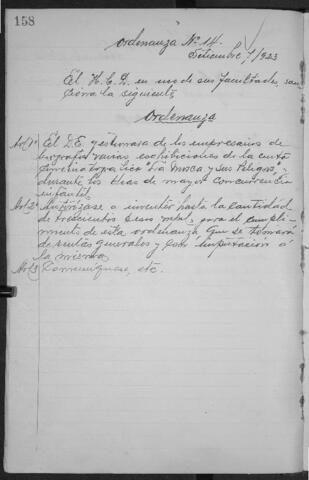 158
Ordenanza Nº 14.
Setiembre 7/923
El H.C.D. en uso de sus facultades, san-
ciona la siguiente
Ordenanza
Art 1º El D.E. gestionara de los empresarios de
biografos varias exhibiciones de la cinta
cinematografica "La Mosca y sus Peligros,"
durante los dias de mayor concurrencia
infantil
Art 2º Autorizase a invertir hasta la cantidad
de trescientos pesos m/nal, para el cumpli-
miento de esta ordenanza que se tomará
de rentas generales y con imputación á
la misma
Art 3 Comuniquese, etc.